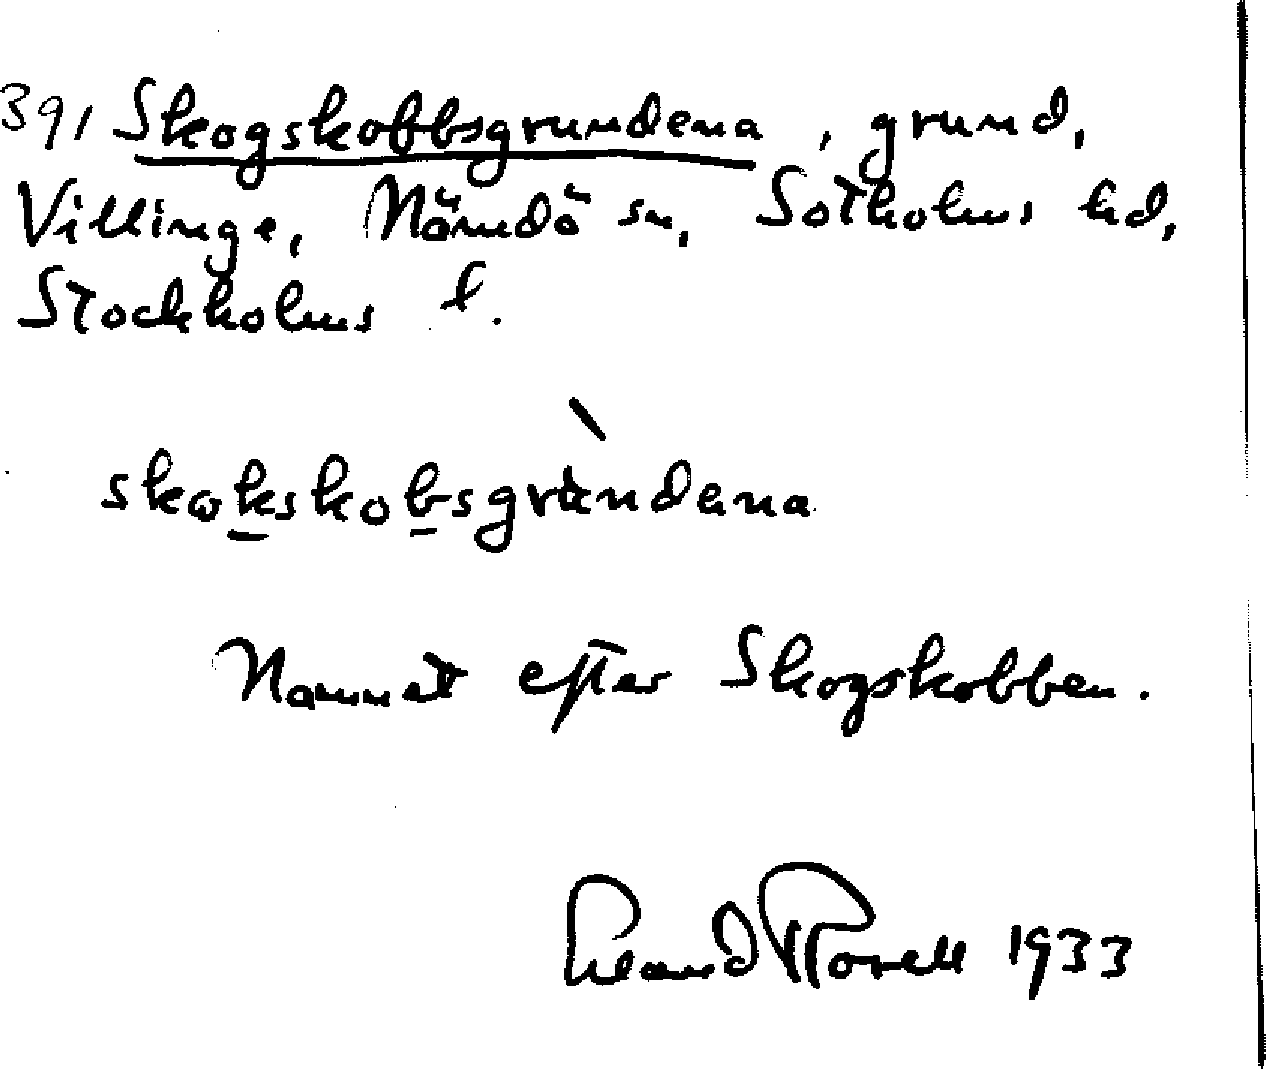 391 Skogskobbsgrundena, grund,
Villinge, Nämdö sn, Sotholms hd,
Stockholms l.
skɷkskobsgrùndena
Namnet efter Skogskobben.
1933